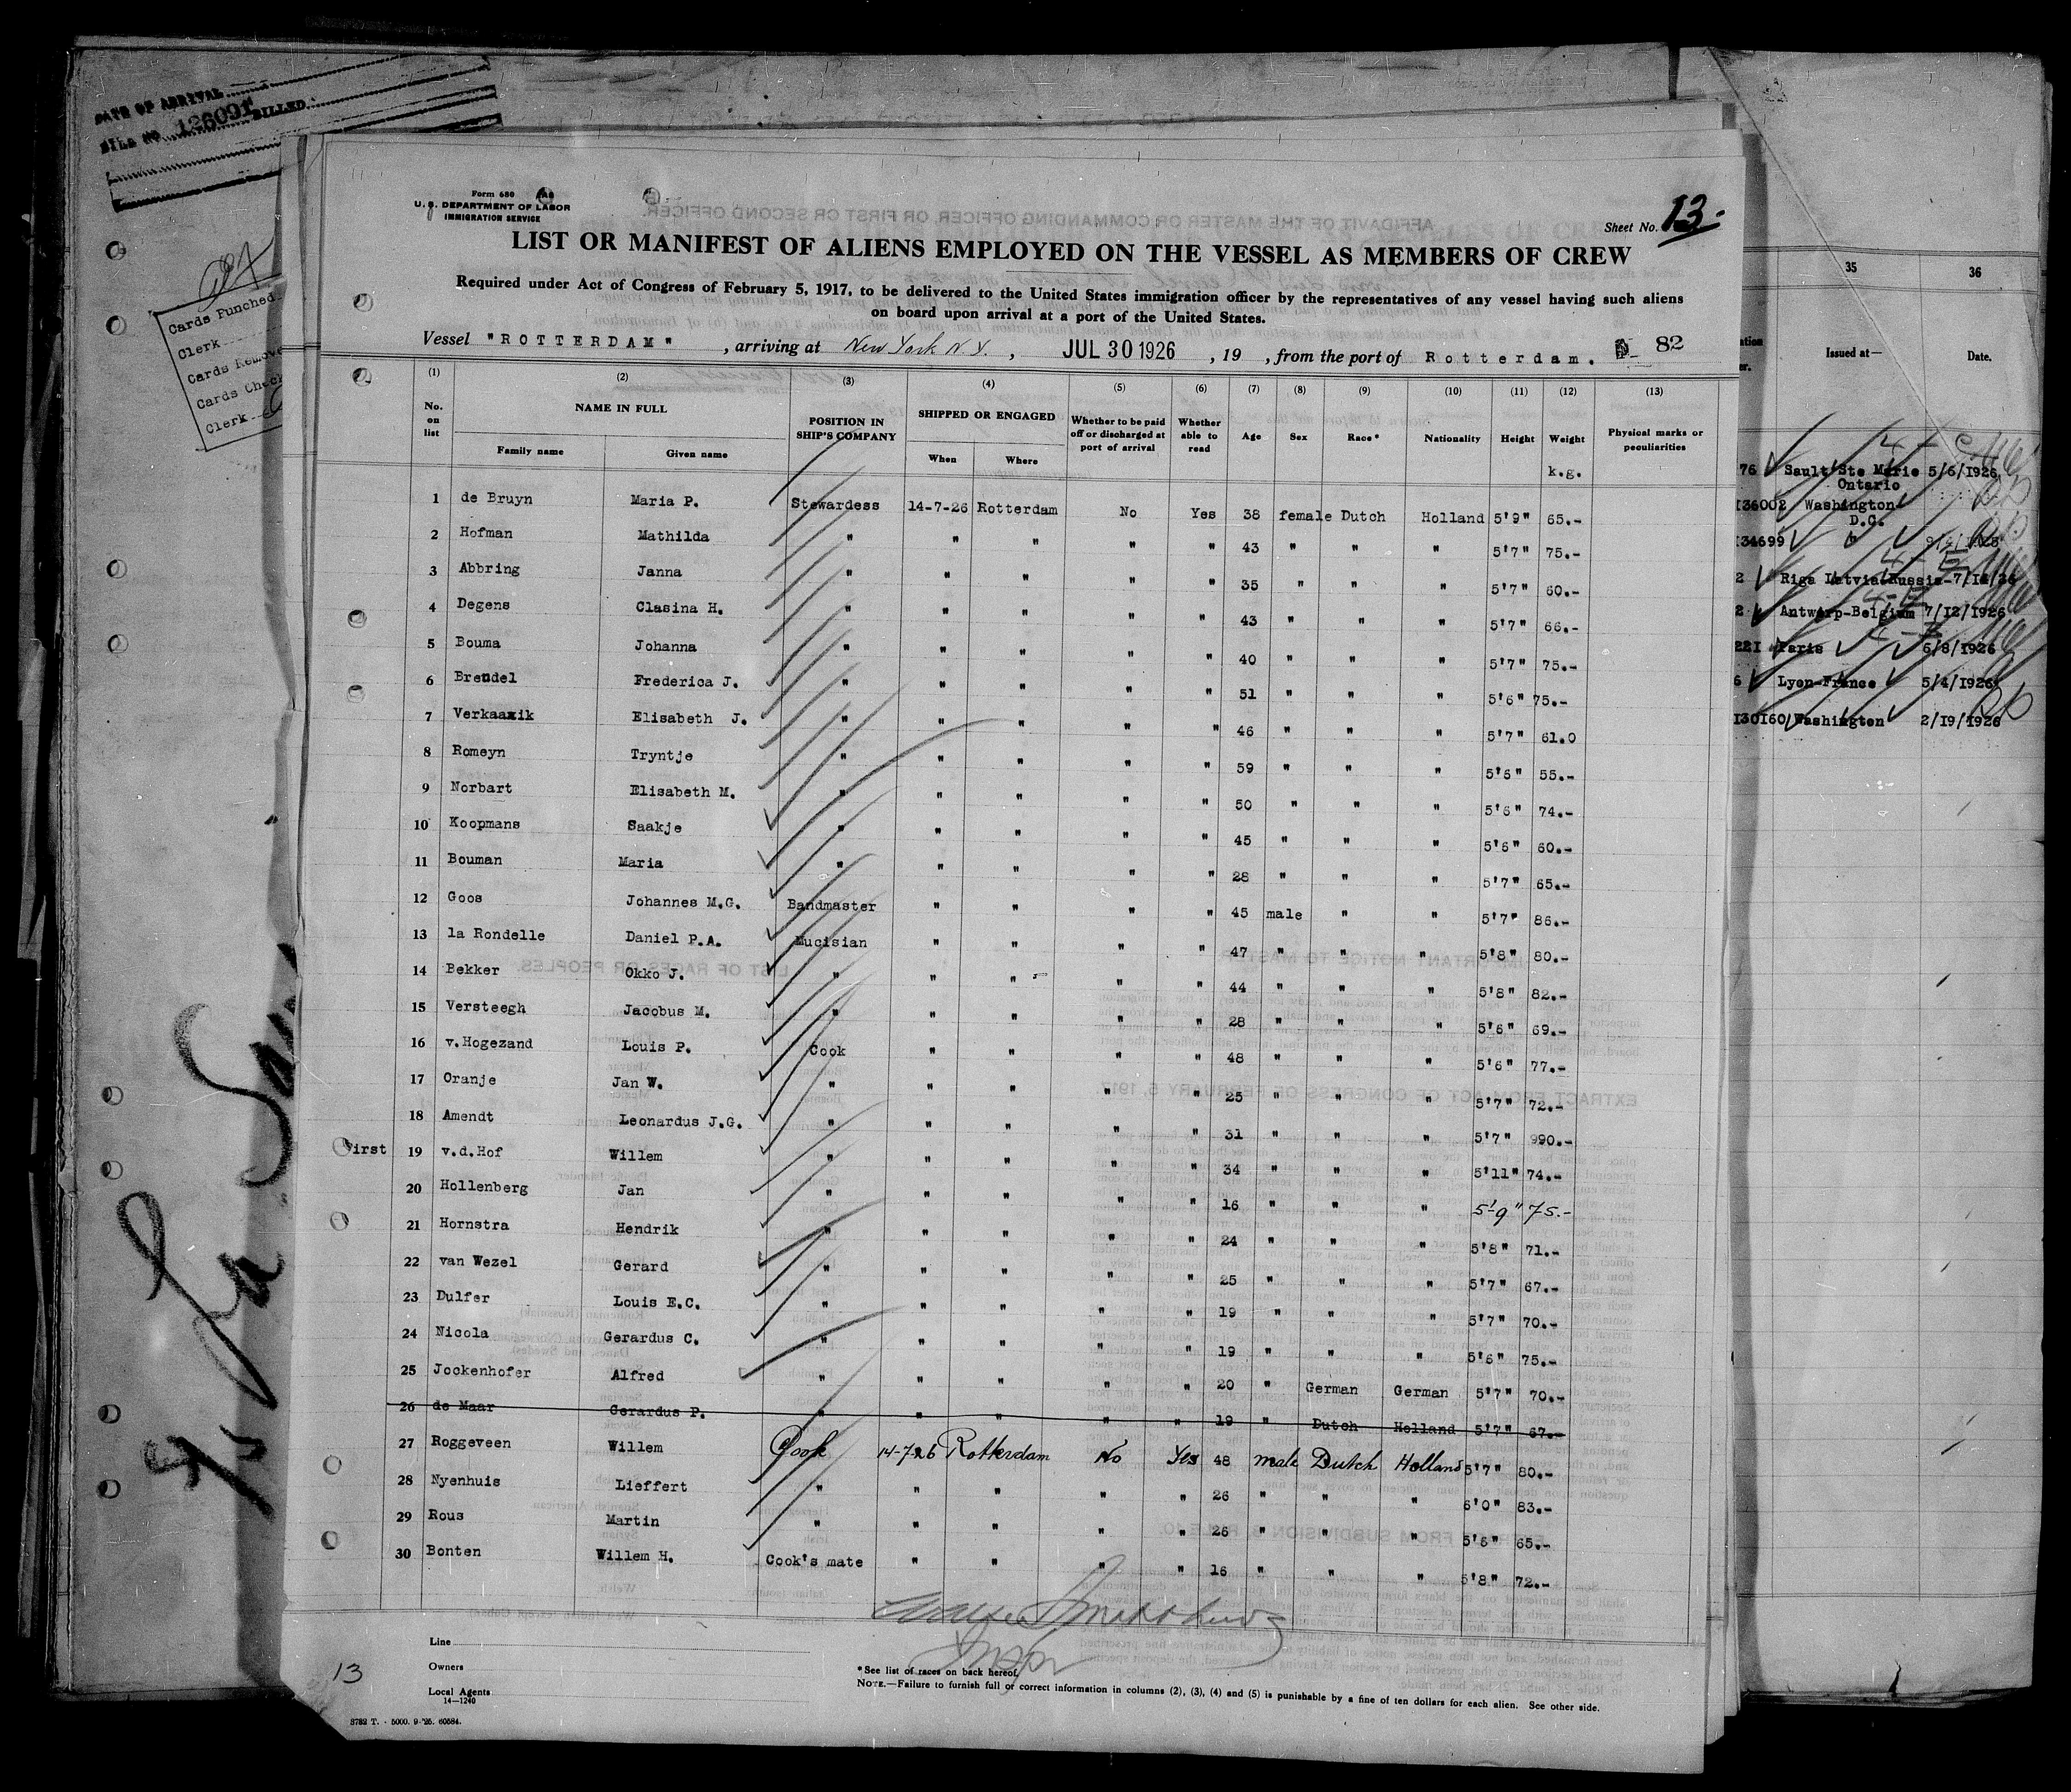 DATE OF ARRIVAL
BILL NO. 126091 BILLED
Cards Punched
Clerk
Cards Remove
Cards Check
Clerk
Form 680
U. S. DEPARTMENT OF LABOR
IMMIGRATION SERVICE
Sheet No. 13
LIST OR MANIFEST OF ALIENS EMPLOYED ON THE VESSEL AS MEMBERS OF CREW
Required under Act of Congress of February 5, 1917, to be delivered to the United States immigration officer by the representatives of any vessel having such aliens
on board upon arrival at a port of the United States.
Vessel "ROTTERDAM" , arriving at New York N.Y. , JUL 30 1926 , 19 , from the port of Rotterdam. 82
(1) (2) (3) (4) (5) (6) (7) (8) (9) (10) (11) (12) (13)
No. on list NAME IN FULL Family name Given name POSITION IN SHIP'S COMPANY SHIPPED OR ENGAGED When Where Whether to be paid off or discharged at port of arrival Whether able to read Age Sex Race* Nationality Height Weight Physical marks or peculiarities
k.g.
1 de Bruyn Maria P. Stewardess 14-7-26 Rotterdam No Yes 38 female Dutch Holland 5'9" 65.-
2 Hofman Mathilda " " " " " 43 " " " 5'7" 75.-
3 Abbring Janna " " " " " 35 " " " 5'7" 60.-
4 Degens Clasina H. " " " " " 43 " " " 5'7" 66.-
5 Bouma Johanna " " " " " 40 " " " 5'7" 75.-
6 Brendel Frederica J. " " " " " 51 " " " 5'6" 75.-
7 Verkaaxik Elisabeth J. " " " " " 46 " " " 5'7" 61.0
8 Romeyn Tryntje " " " " " 59 " " " 5'6" 55.-
9 Norbart Elisabeth M. " " " " " 50 " " " 5'6" 74.-
10 Koopmans Saakje " " " " " 45 " " " 5'6" 60.-
11 Bouman Maria " " " " " 28 " " " 5'7" 65.-
12 Goos Johannes M.G. Bandmaster " " " " 45 male " " 5'7" 86.-
13 la Rondelle Daniel P.A. Mucisian " " " " 47 " " " 5'8" 80.-
14 Bekker Okko J. " " " " " 44 " " " 5'8" 82.-
15 Versteegh Jacobus M. " " " " " 28 " " " 5'6" 69.-
16 v.Hogezand Louis P. Cook " " " " 48 " " " 5'6" 77.-
17 Oranje Jan W. " " " " " 25 " " " 5'7" 72.-
18 Amendt Leonardus J.G. " " " " " 31 " " " 5'7" 990.-
First 19 v.d.Hof Willem " " " " " 34 " " " 5'11" 74.-
20 Hollenberg Jan " " " " " 16 " " " 5'-9" 75.-
21 Hornstra Hendrik " " " " " 24 " " " 5'8" 71.-
22 van Wezel Gerard " " " " " 25 " " " 5'7" 67.-
23 Dulfer Louis E.C. " " " " " 19 " " " 5'7" 70.-
24 Nicola Gerardus C. " " " " " 19 " " " 5'6" 75.-
25 Jockenhofer Alfred " " " " " 20 " German German 5'7" 70.-
26 de Maar Gerardus P. " " " " " 19 " Dutch Holland 5'7" 67.-
27 Roggeveen Willem Cook 14-7-26 Rotterdam No Yes 48 male Dutch Holland 5'7" 80.-
28 Nyenhuis Lieffert " " " " " 26 " " " 6'0" 83.-
29 Rous Martin " " " " " 26 " " " 5'6" 65.-
30 Bonten Willem H. Cook's mate " " " " 16 " " " 5'8" 72.-
Line
Owners
Local Agents
14—1240
*See list of races on back hereof.
NOTE.—Failure to furnish full or correct information in columns (2), (3), (4) and (5) is punishable by a fine of ten dollars for each alien. See other side.
13
3782 T. - 5000. 9-'25. 60584.
35 36
Issued at— Date.
76 Sault Ste Marie 5/6/1926
Ontario
136002 Washington
D.C.
134699 "
2 Riga Latvia Russia 7/16/26
2 Antwerp-Belgium 7/12/1926
221 Paris 6/8/1926
6 Lyon-France 5/4/1926
130160 Washington 2/19/1926